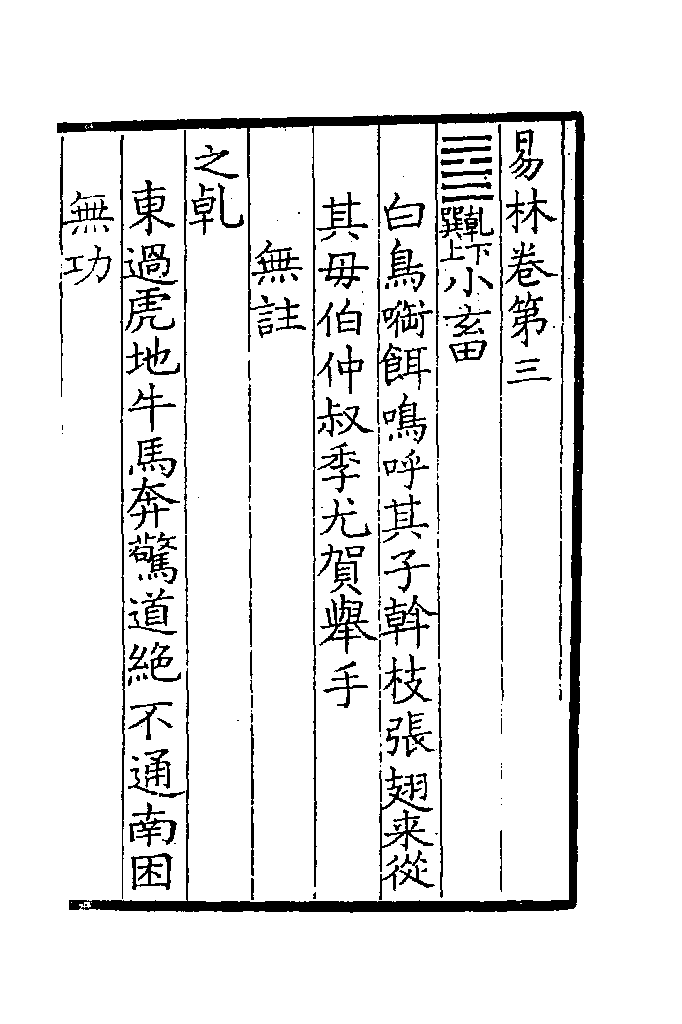 易林卷第三
䷈乾下巽上小畜
白鳥㗸餌鳴呼其子斡枝張翅来從
其母伯仲叔季尤賀舉手
無註
之乹
東過虎地牛馬奔驚道絶不通南困
無功